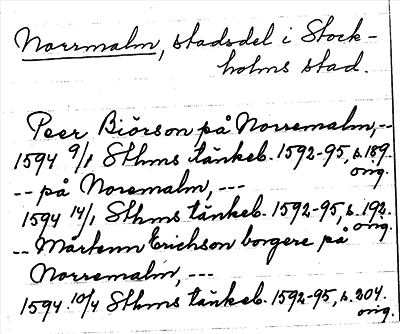 Norrmalm, stadsdel i Stock-
holms stad.
Peer Biörson på Norremalm,--
1594 9/1 Sthms tänkeb. 1592-95, s. 189.
orig.
-- på Noremalm, ---
1594 14/1 Sthms tänkeb. 1592-95, s. 192.
orig.
-- Martenn Erichson borgere på
Norremalm, ---
1594 10/4 Sthms tänkeb. 1592-95, s. 204.
orig.